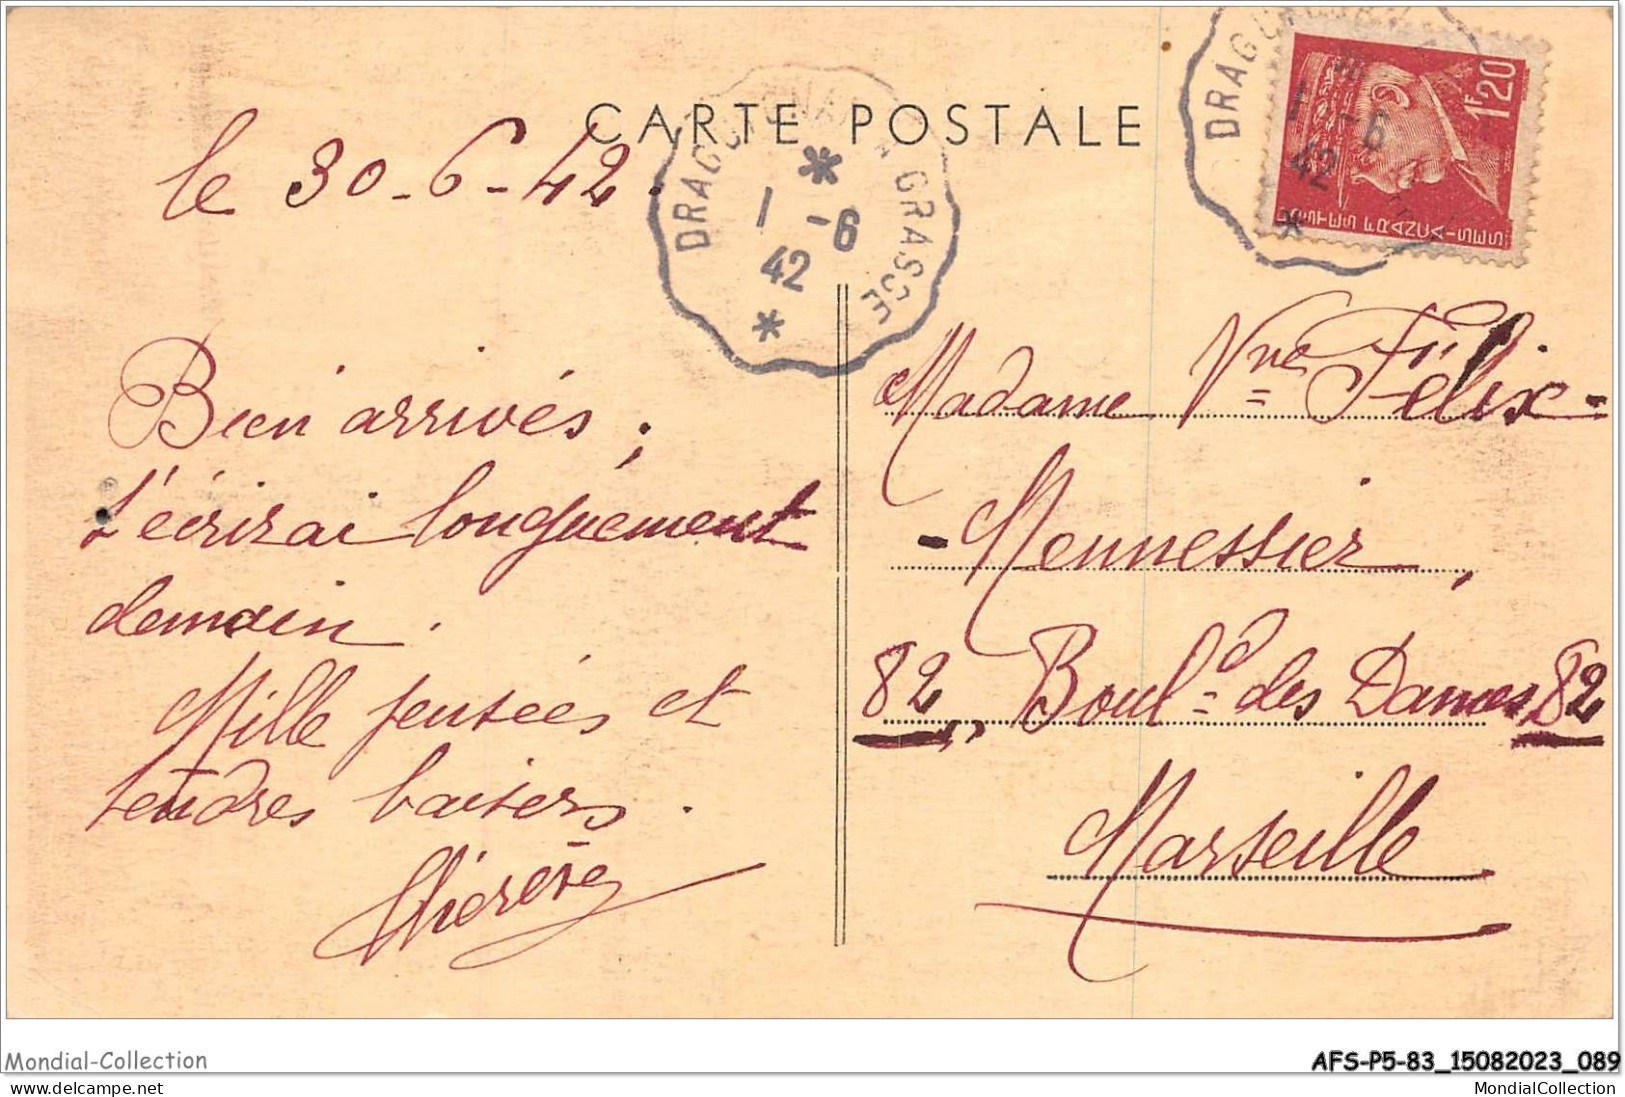 CARTE POSTALE
DRAGUIGNAN A GRASSE
1 -6
42
DRAGU
1 -6
42
1F20
POSTES FRANÇAISES
le 30-6-42.
Bien arrivés ;
t'écrirai longuement
demain.
Mille pensées et
tendres baisers.
Madame Vve Félix-
-Mennessier,
82, Boul.d des Dames 82
Marseille
Mondial-Collection
AFS-P5-83_15082023_089
delcampe.net
MondialCollection